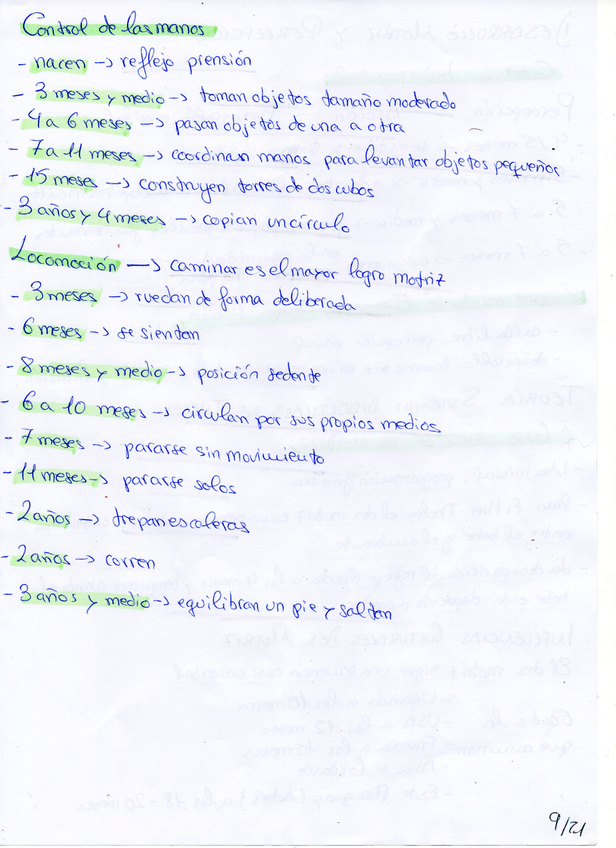 Control de las manos
- nacen → reflejo prensión
- 3 meses y medio → toman objetos tamaño moderado
- 4 a 6 meses → pasan objetos de una a otra
- 7 a 11 meses → coordinan manos para levantar objetos pequeños
- 15 meses → construyen torres de dos cubos
- 3 años y 4 meses → copian un círculo
Locomoción → caminar es el mayor logro motriz
- 3 meses → ruedan de forma deliberada
- 6 meses → se sientan
- 8 meses y medio → posición sedente
- 6 a 10 meses → circulan por sus propios medios
- 7 meses → pararse sin movimiento
- 11 meses → pararse solos
- 2 años → trepan escaleras
- 2 años → corren
- 3 años y medio → equilibran un pie y saltan
9/21